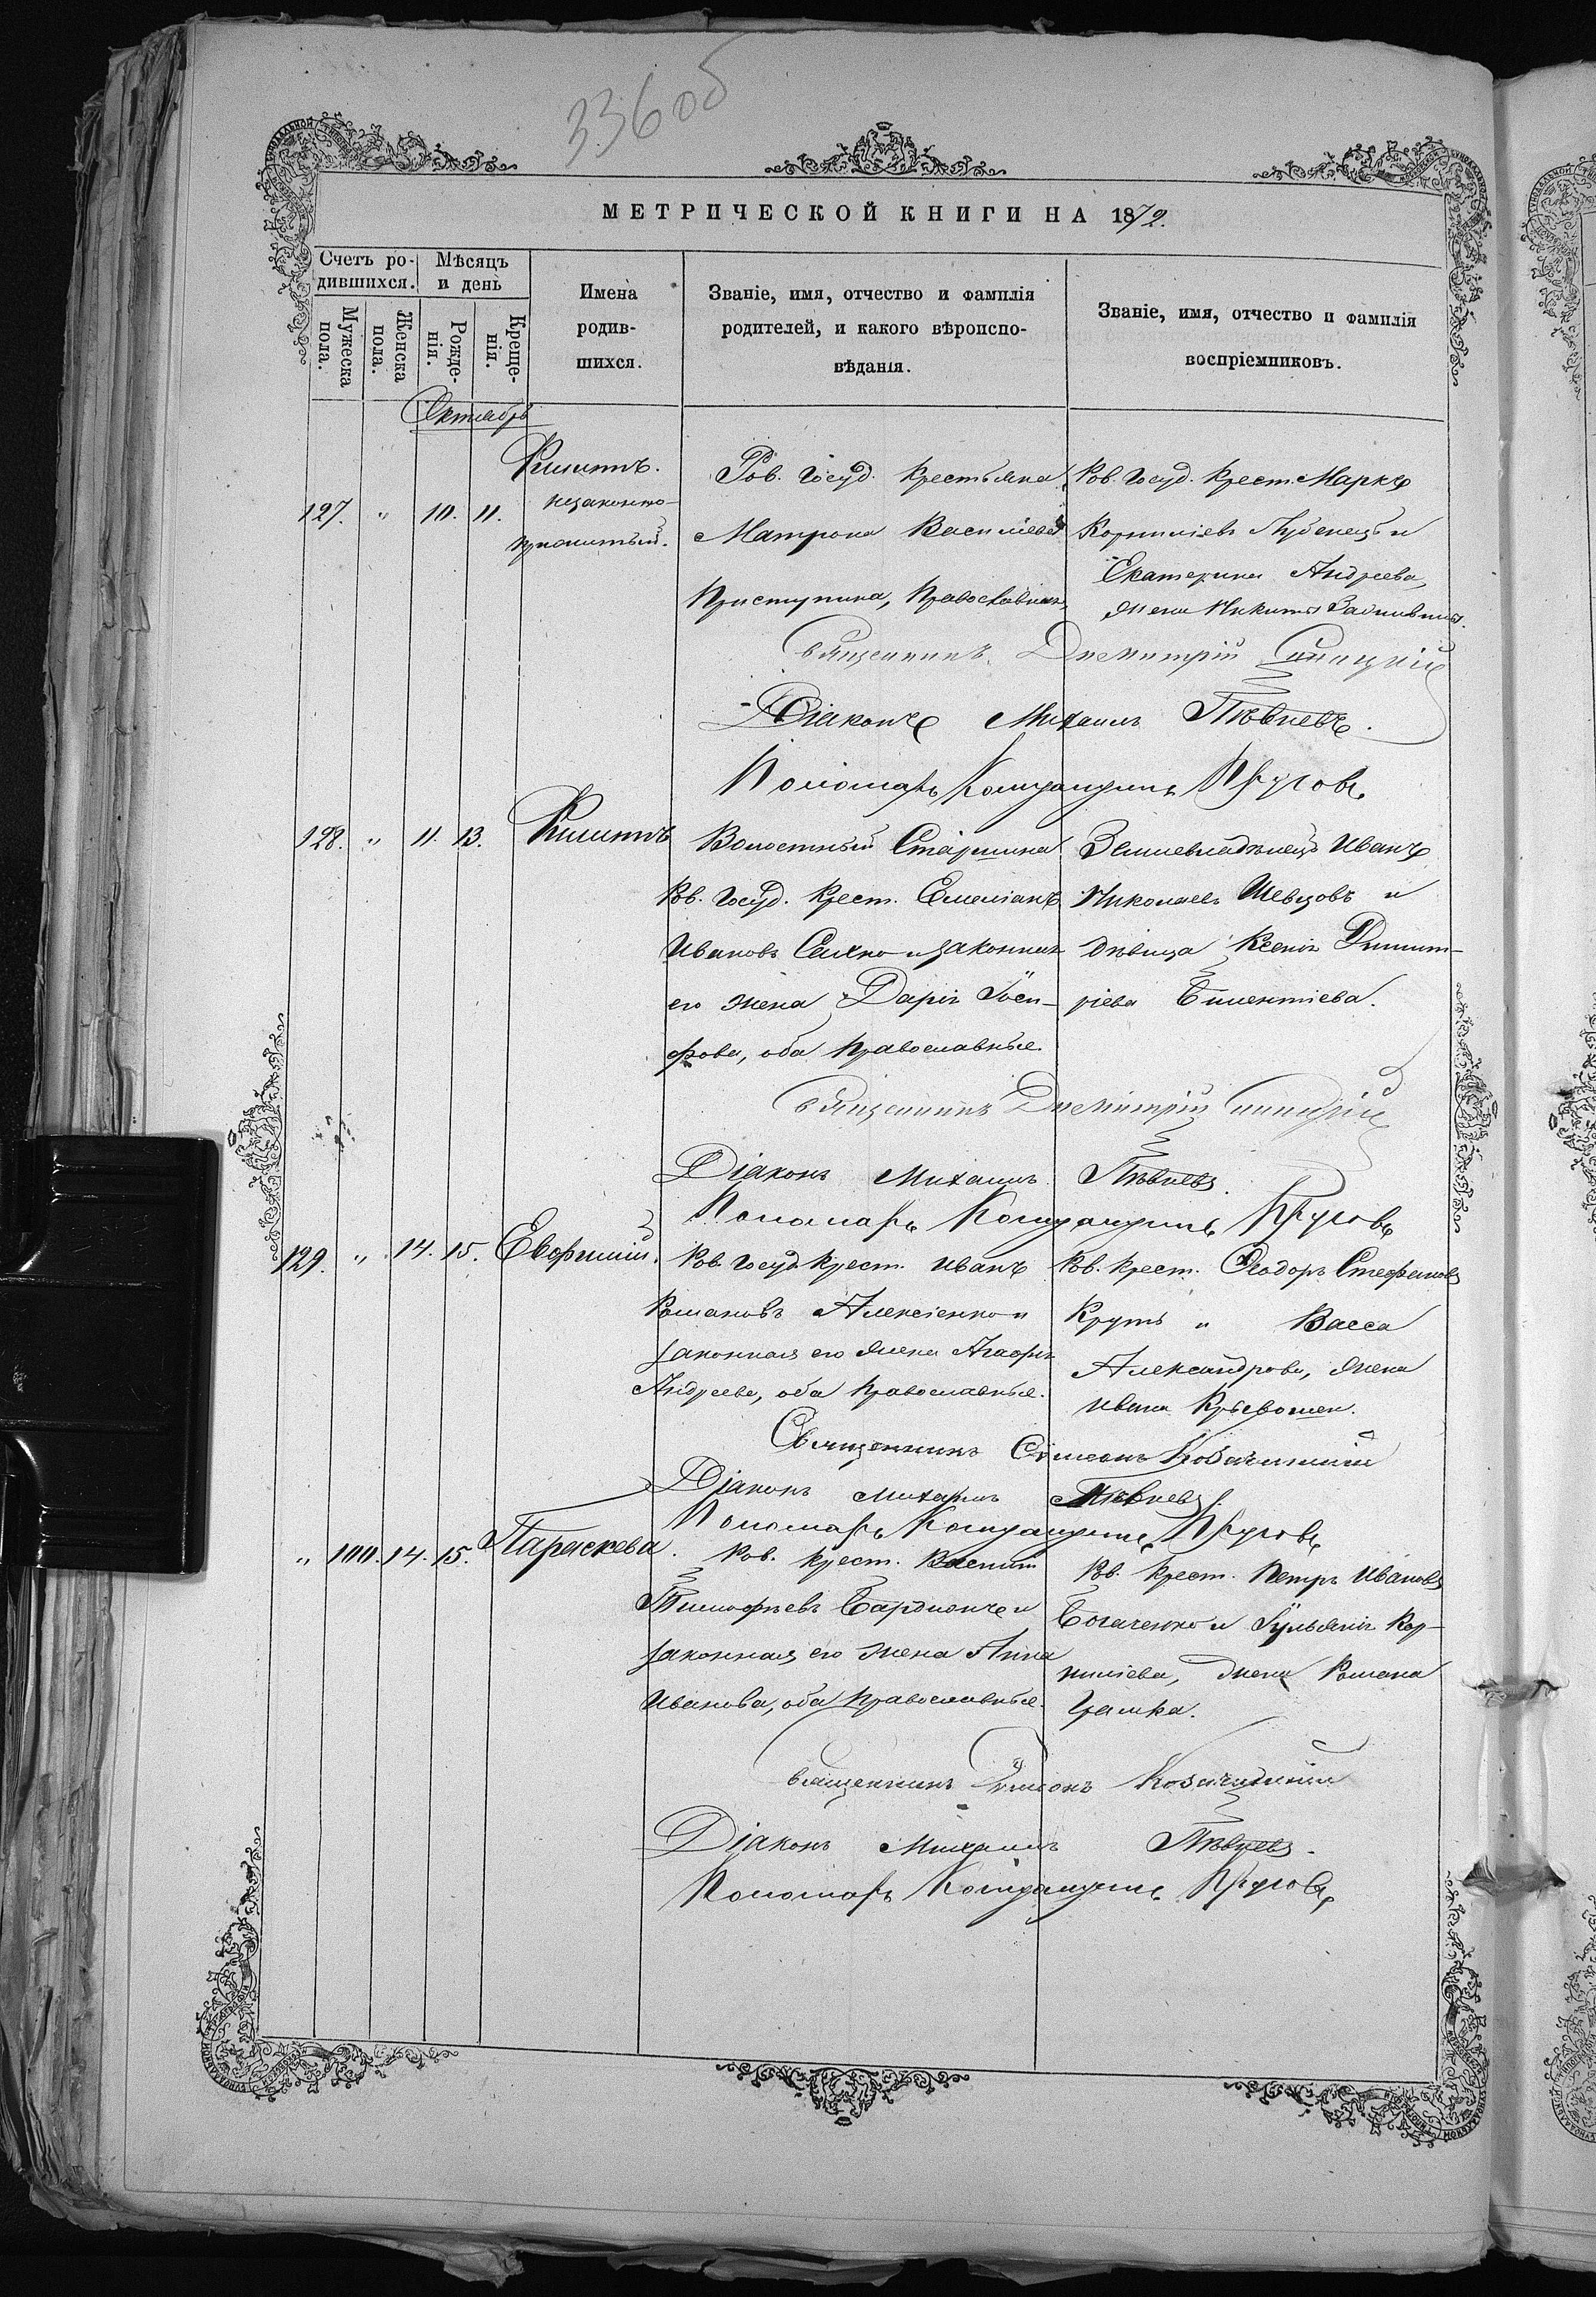 336об
МЕТРИЧЕСКОЙ КНИГИ НА 1872.
Счетъ ро-
дившихся.
Мѣсяцъ
и день
Мужеска
пола.
Женска
пола.
Рожде-
нія.
Креще-
нія.
Имена
родив-
шихся.
Званіе, имя, отчество и фамилія
родителей, и какого вѣроиспо-
вѣданія.
Званіе, имя, отчество и фамилія
воспріемниковъ.
Октябрь
127. " 10. 11.
Филиппъ.
незаконно-
прижитый.
Ров. Госуд. Крестьянка
Матрона Василіева
Приступина, Православная
Ров. Госуд. Крест. Маркъ
Корниліевъ Лубенецъ и
Екатерина Андреева,
жена Никиты
Священникъ Димитрій Синицкій
Діаконъ Михаилъ Пѣвневъ.
Пономарь Кондратъ Круговъ
128. " 11. 13. Филиппъ
Волостный Старшина
Ров. Госуд. Крест. Емеліанъ
Ивановъ Сихно и законная
его жена Дарія Іоси-
фова, оба Православные.
Землевладѣлецъ Иванъ
Николаевъ Шевцовъ и
дѣвица Ксенія Димит-
ріева
Священникъ Димитрій Синицкій
Діаконъ Михаилъ Пѣвневъ.
Пономарь Круговъ
129. " 14. 15. Евфимій.
Ров. Госуд. Крест. Иванъ
Романовъ Алексіенко и
законная его жена Агафія
Андреева, оба Православные.
Ров. Крест. Ѳеодоръ Стефановъ
Крутъ и Васса
Александрова, жена
Ивана
Священникъ Симеонъ
Діаконъ Михаилъ Пѣвневъ.
Пономарь Круговъ
" 100. 14. 15. Параскева.
Ров. Крест. Василій
Тимофѣевъ и
законная его жена Анна
Иванова, оба Православные.
Ров. Крест. Петръ Ивановъ
Богаченко и Іуліанія Кор-
ниліева, жена Романа
Священникъ Симеонъ
Діаконъ Михаилъ Пѣвневъ.
Пономарь Круговъ